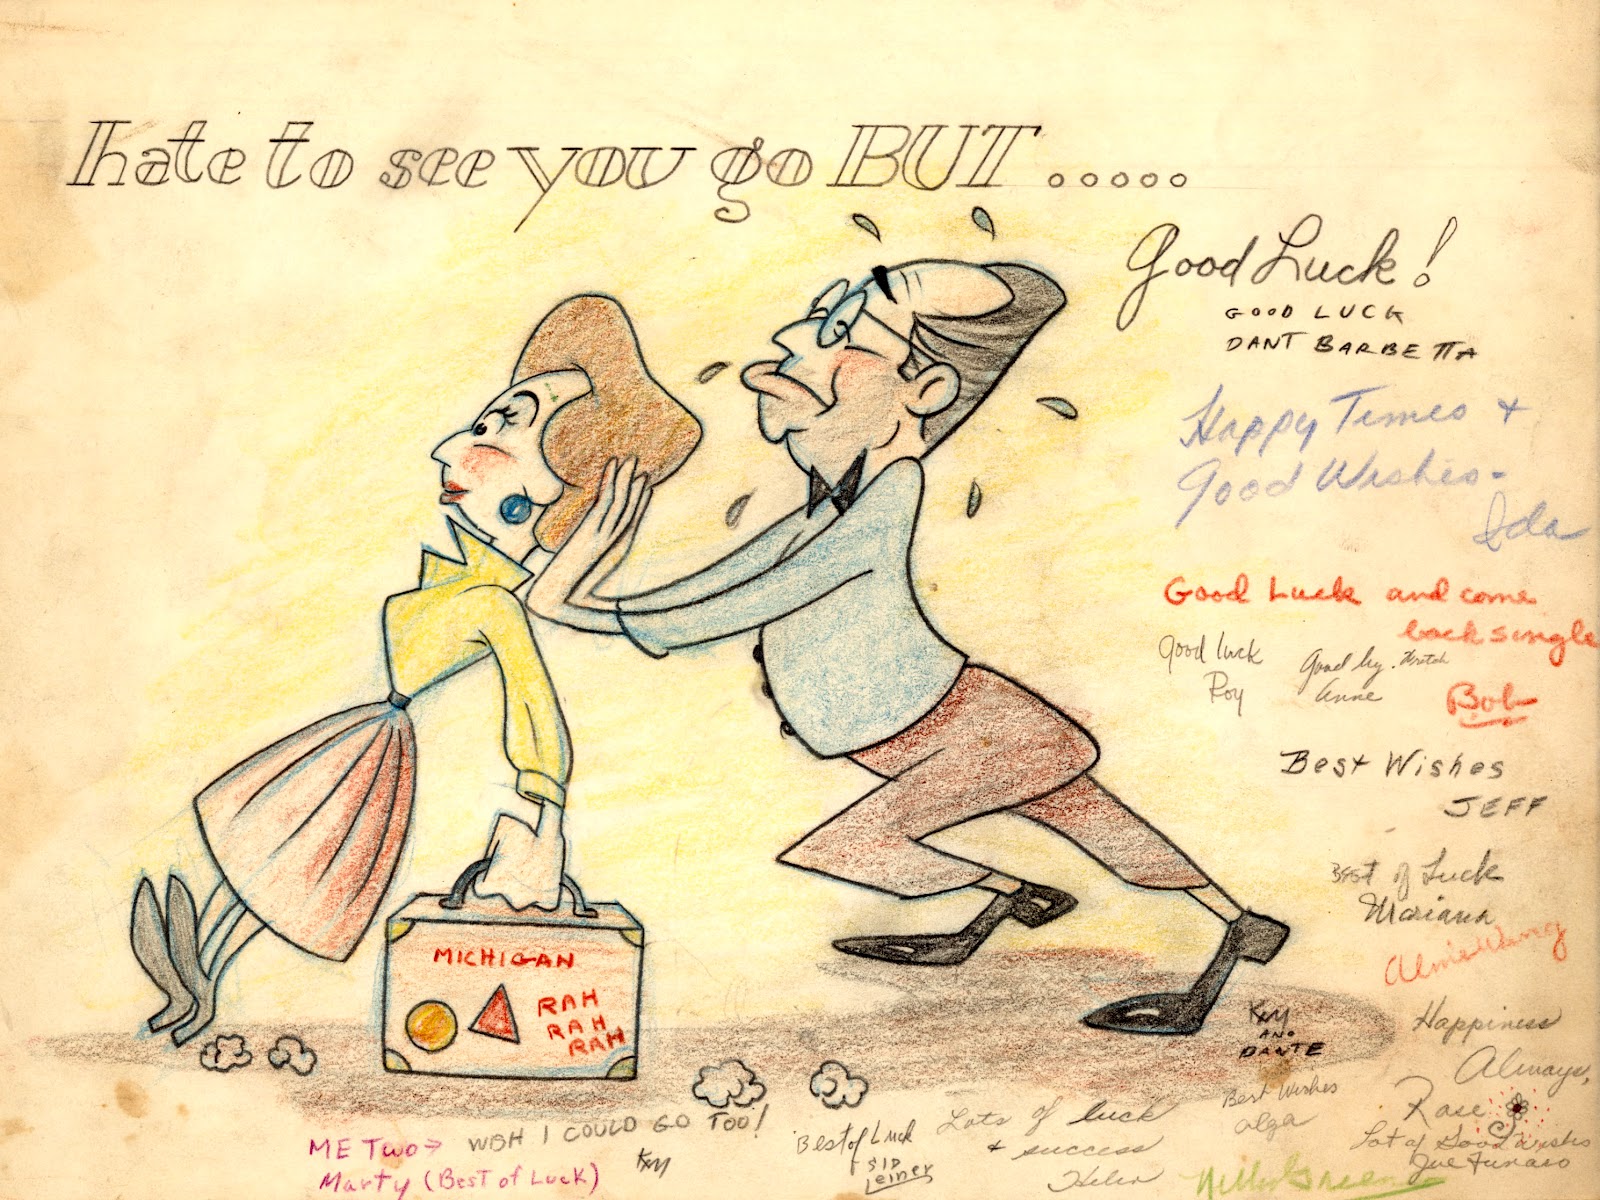 hate to see you go BUT.....
Good Luck!
GOOD LUCK
DANT BARBETTA
Happy Times +
Good Wishes-
Ida
Good Luck and come
back single
Bob
Good luck
Roy
Good by.
Anne
Best Wishes
JEFF
Best of Luck
Mariana
Happiness
Always,
Rose
MICHIGAN
RAH
RAH
RAH
KAY
AND
DANTE
Best Wishes
Olga
Lot of Good wishes
Joe Funaro
ME Two→
Marty (Best of Luck)
WISH I COULD GO TOO!
KAY
Best of Luck
SID
Leiner
Lots of luck
+ success
Helen
Green